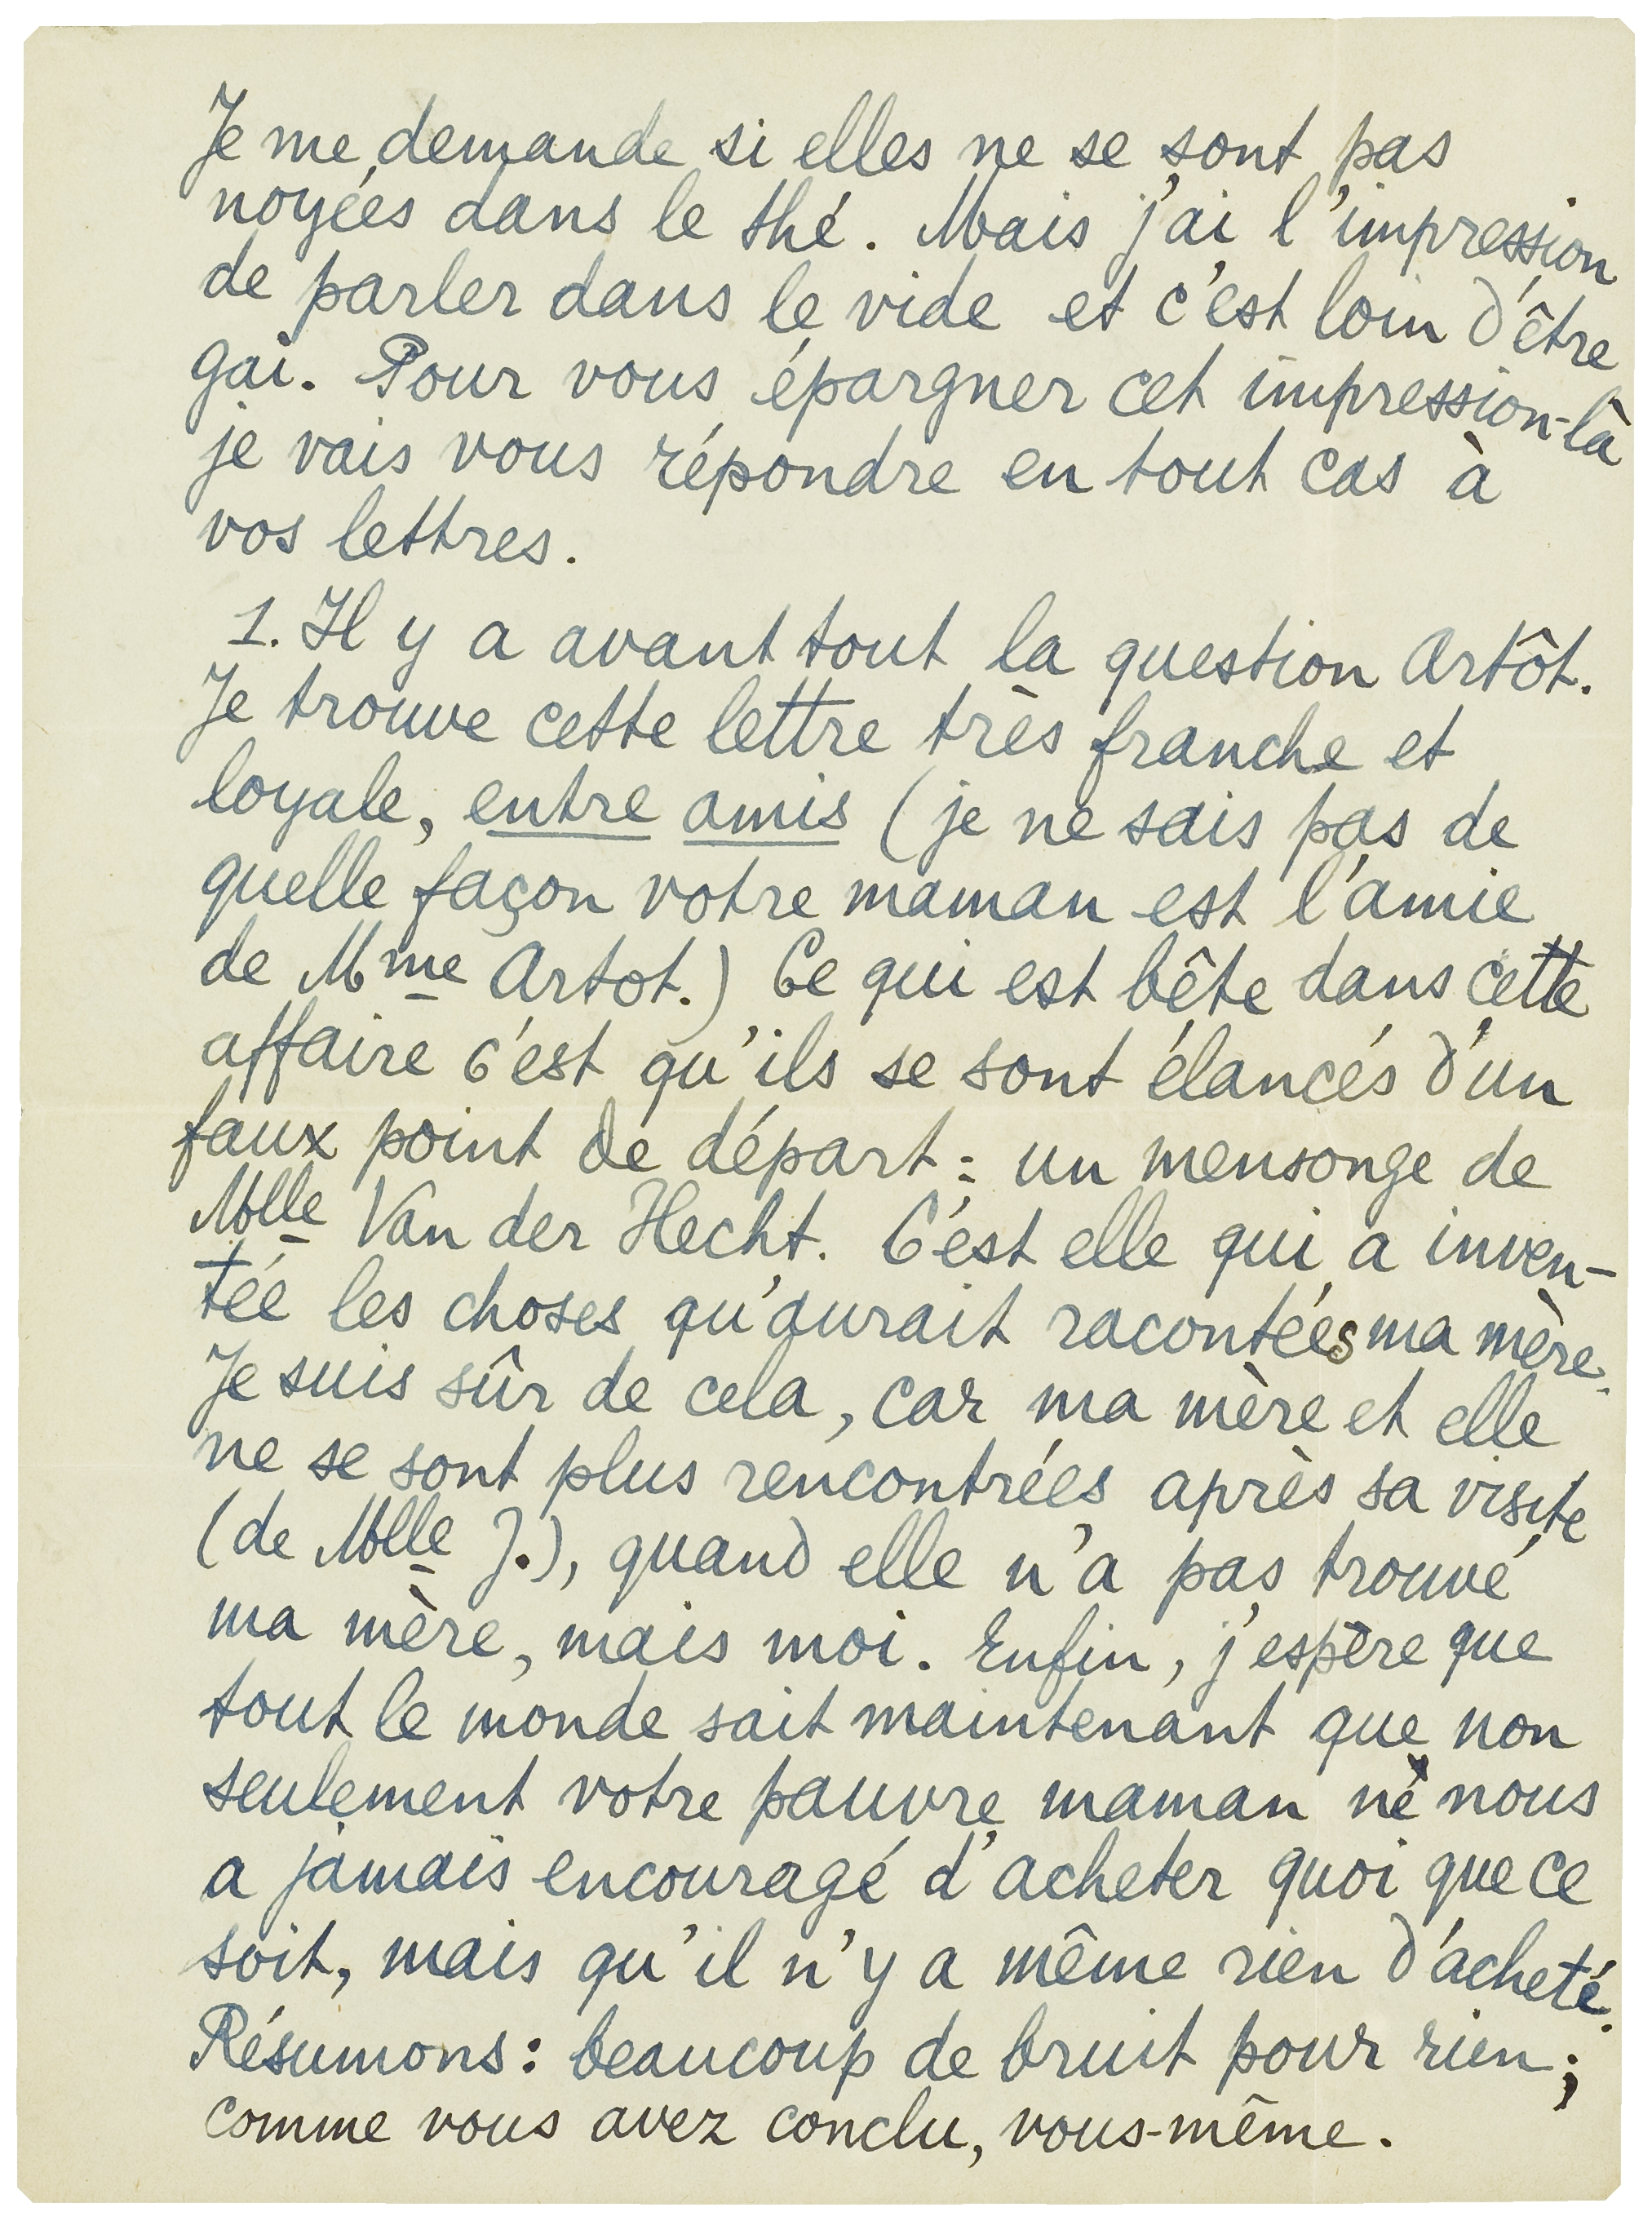 Je me demande si elles ne se sont pas
noyées dans le thé. Mais j'ai l'impression
de parler dans le vide et c'est loin d'être
gai. Pour vous épargner cet impression-là
je vais vous répondre en tout cas à
vos lettres.
1. Il y a avant tout la question Artôt.
Je trouve cette lettre très franche et
loyale, entre amis (je ne sais pas de
quelle façon votre maman est l'amie
de Mme Artot.) Ce qui est bête dans cette
affaire c'est qu'ils se sont élancés d'un
faux point de départ : un mensonge de
Mlle Van der Hecht. C'est elle qui a inven-
tée les choses qu'aurait racontées ma mère.
Je suis sûr de cela, car ma mère et elle
ne se sont plus rencontrées après sa visite
(de Mlle J.), quand elle n'a pas trouvé
ma mère, mais moi. Enfin, j'espère que
tout le monde sait maintenant que non
seulement votre pauvre maman ne nous
a jamais encouragé d'acheter quoi que ce
soit, mais qu'il n'y a même rien d'acheté.
Résumons : beaucoup de bruit pour rien ;
comme vous avez conclu, vous-même.